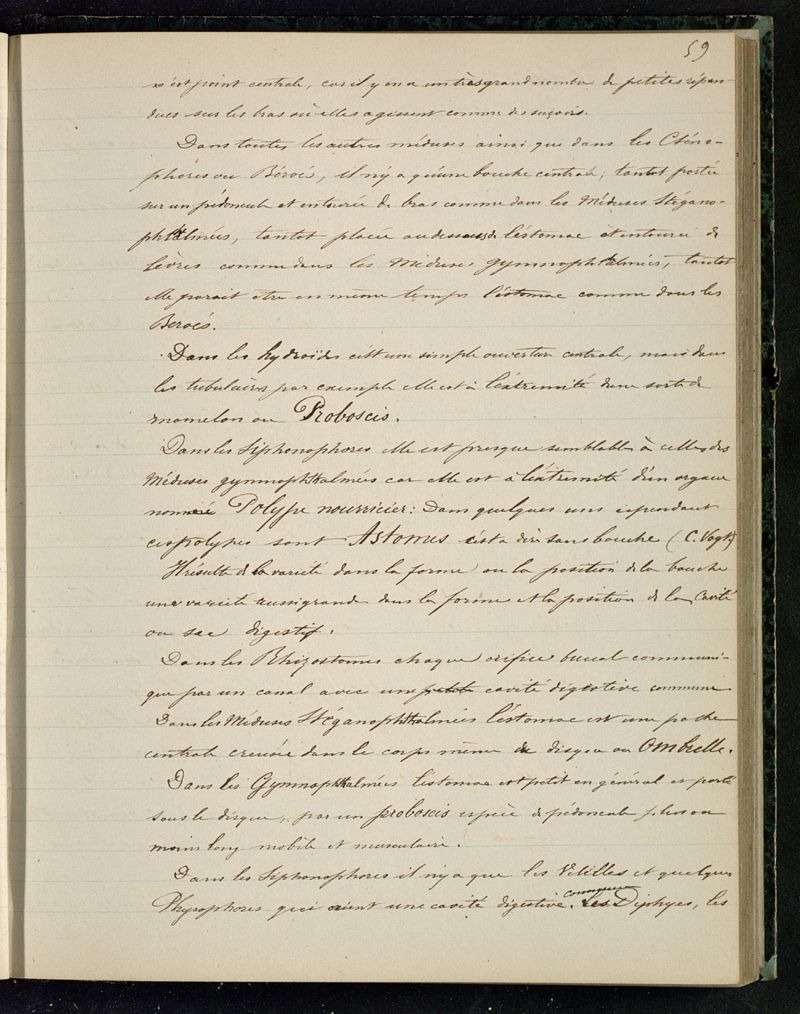 59
n'est point centrale, car il y en a un très grand nombre de petites répan-
dues sur les bras où elles agissent comme des suçoirs.
Dans toutes les autres méduses ainsi que dans les Cténo-
phores ou Béroés, il n'y a qu'une bouche centrale, tantot portée
sur un pédoncule et entourée de bras comme dans les Méduses Stégano-
phtalmées, tantot placée au dessous de l'éstomac et entourée de
lèvres comme dans les Méduses gymnophthalmées, tantot
elle parait etre en même temps l'éstomac comme dans les
Beroés.
Dans les hydroïdes c'est une simple ouverture centrale, mais dans
les tubulaires par exemple elle est à l'éxtremité d'une sorte de
mamelon ou Proboscis.
Dans les Siphonophores elle est presque semblable à celle des
Méduses gymnophthalmées car elle est à l'éxtremité d'un organe
nommé Polype nourricier: Dans quelques uns cependant
ces polypes sont Astomes c'est a dire sans bouche (C. Vogt)
Il résulte de la varieté dans la forme ou la position de la bouche
une varieté aussi grande dans la forme et la position de la Cavité
ou sac digestif.
Dans les Rhizostomes chaque orifice buccal communi-
que par un canal avec une petite cavité digestive commune
Dans les Méduses Stéganophthalmées l'éstomac est une poche
centrale creusée dans le corps même du disque ou Ombrelle.
Dans les Gymnophthalmées l'estomac est petit en général et porté
sous le disque, par un proboscis espèce de pédoncule plus ou
moins long mobile et musculaire.
Dans les Siphonophores il n'y a que les Vélelles et quelques
Physophores qui aient une cavité digestive commune. Les Diphyes, les